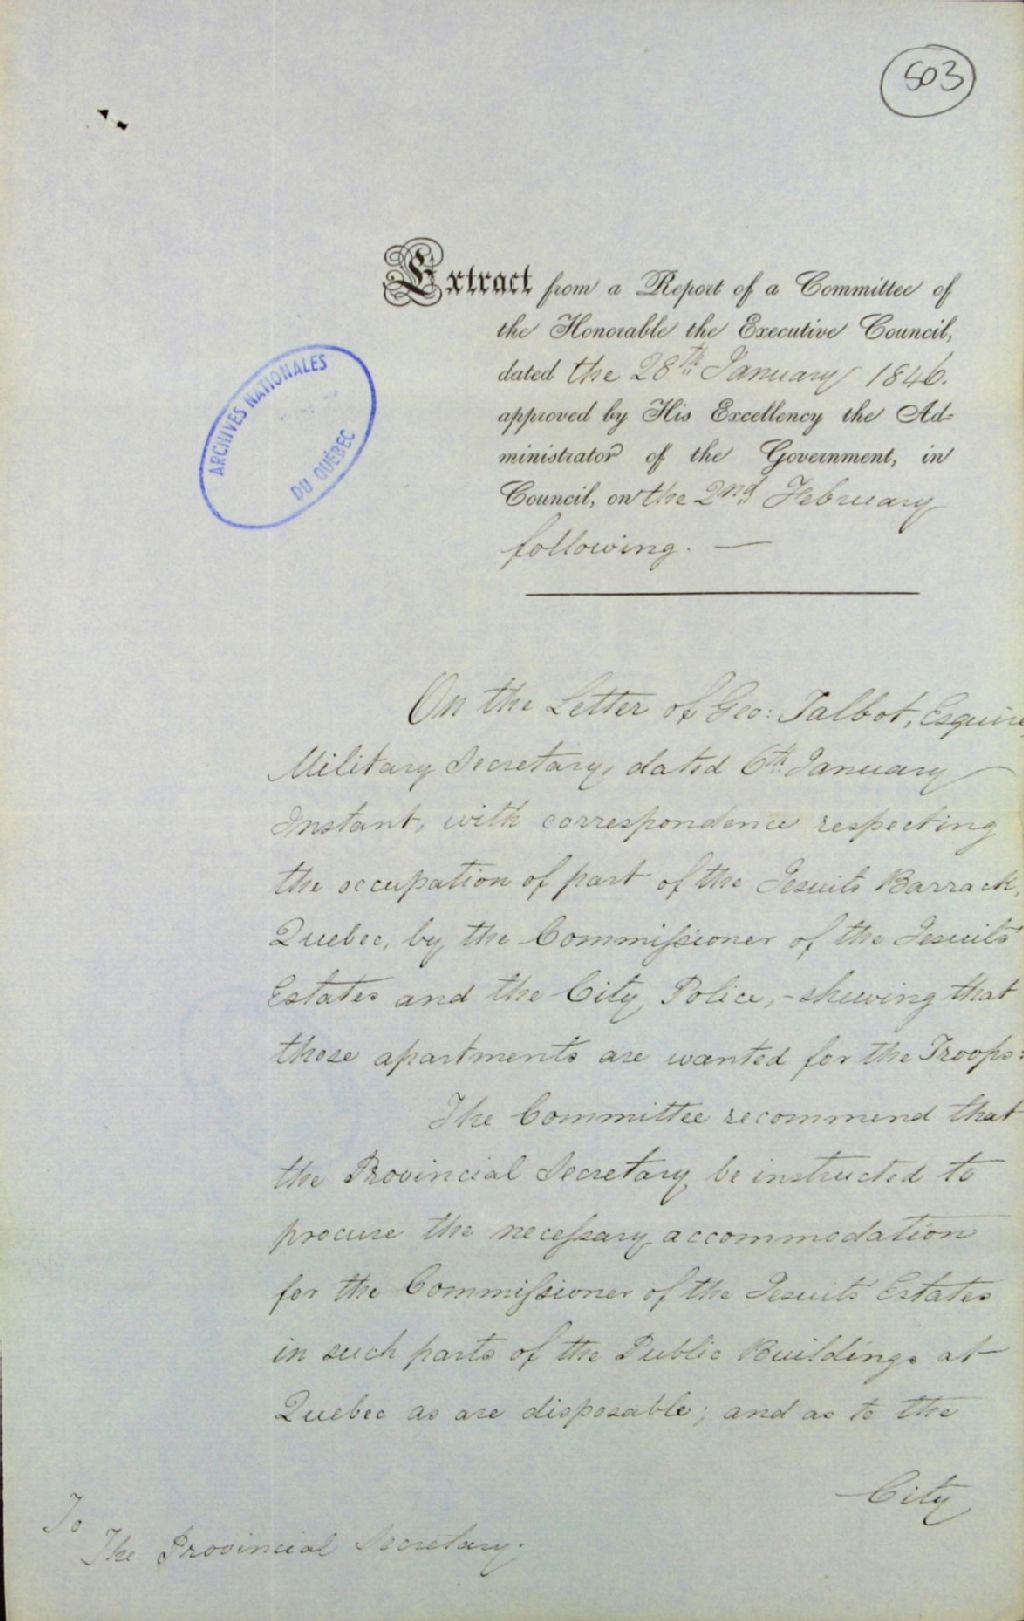 503
Extract from a Report of a Committee of
the Honorable the Executive Council,
dated the 28th January 1846.
approved by His Excellency the Ad-
ministrator of the Government, in
Council, on the 2nd February
following. —
ARCHIVES NATIONALES
DU QUÉBEC
On the Letter of Geo: Talbot, Esquire,
Military Secretary, dated 6th January
Instant, with correspondence respecting
the occupation of part of the Jesuits Barrack,
Quebec, by the Commissioner of the Jesuits
Estates and the City Police, - shewing that
those apartments are wanted for the Troops:
The Committee recommend that
the Provincial Secretary be instructed to
procure the necessary accommodation
for the Commissioner of the Jesuits Estates
in such parts of the Public Buildings at
Quebec as are disposable; and as to the
City
To
The Provincial Secretary.